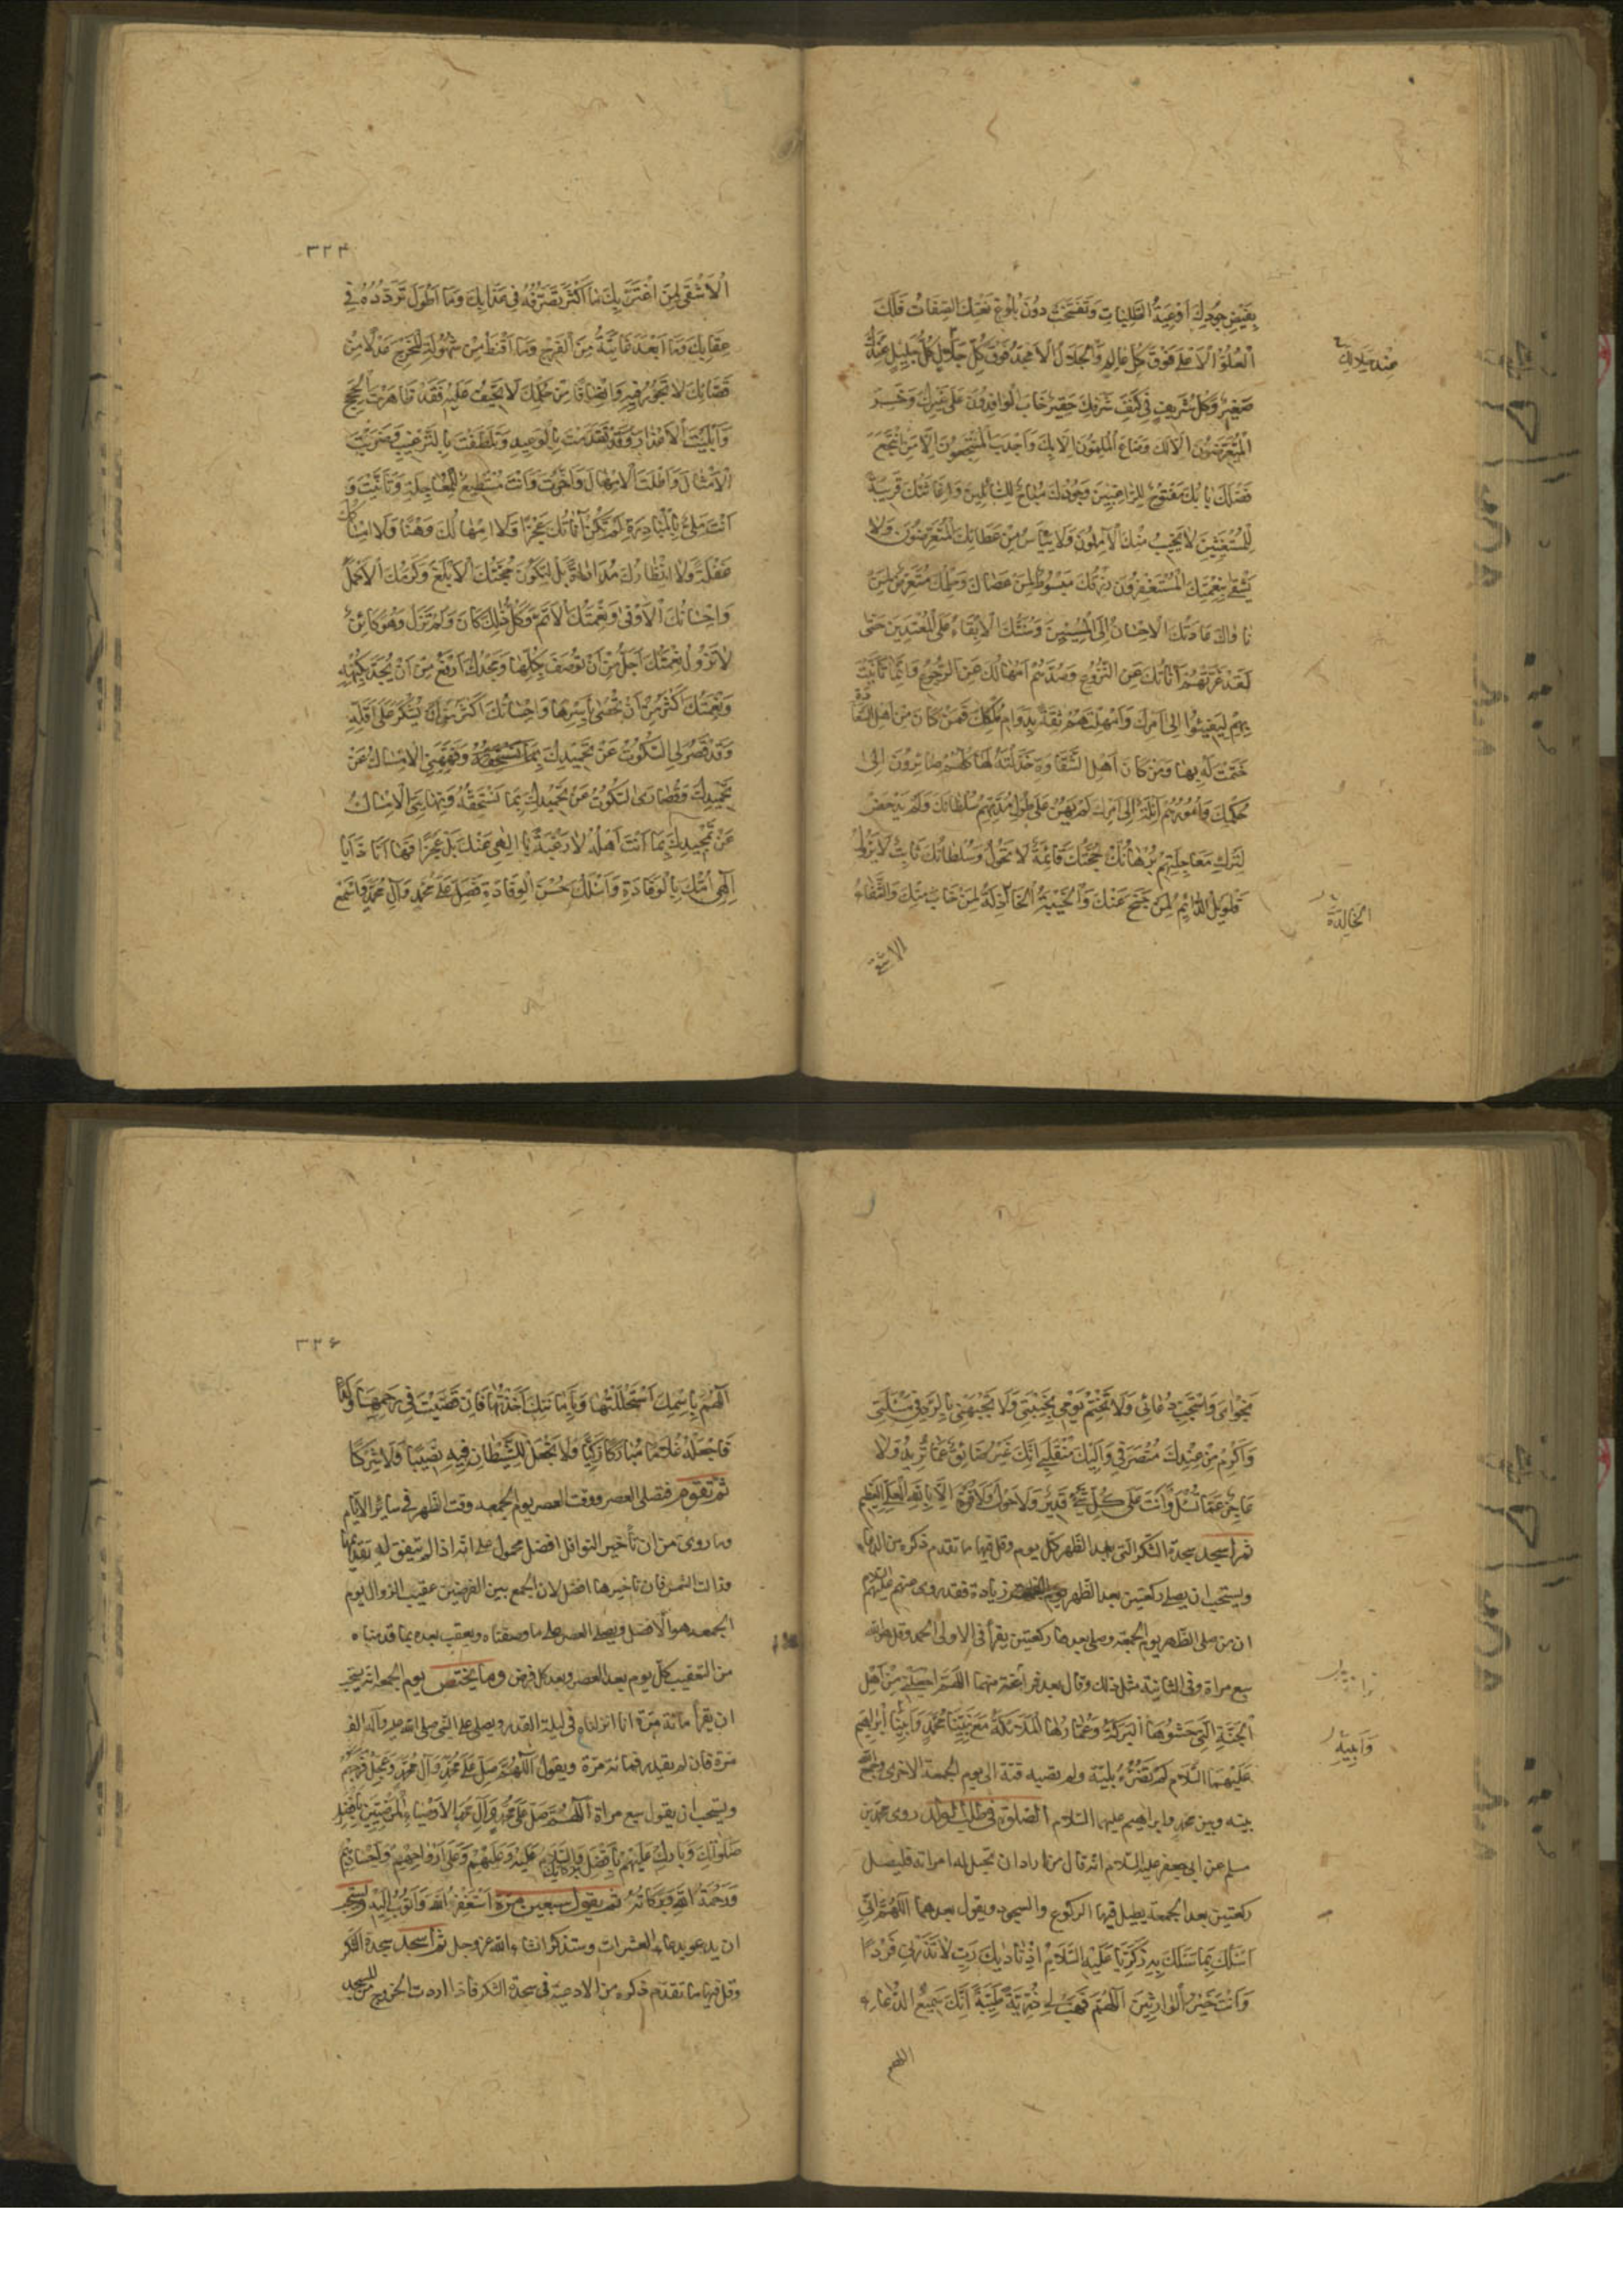 بِفَيْضِ جُودِكَ اَوْعِيَةُ الطَّلِبَاتِ وَتَفَسَّخَتْ دُونَ بُلُوغِ نَعْتِكَ الصِّفَاتُ فَلَكَ
الْعُلُوُّ الْاَعْلىٰ فَوْقَ كُلِّ عَالٍ وَالْجَلَالُ الْاَمْجَدُ فَوْقَ كُلِّ جَلَالٍ كُلُّ جَلِيلٍ عِنْدَكَ
عِنْدَ جَلَالِكَ
صَغِيرٌ وَكُلُّ شَرِيفٍ فِي كَنَفِ شَرَفِكَ حَقِيرٌ خَابَ الْوَافِدُونَ عَلىٰ غَيْرِكَ وَخَسِرَ
الْمُتَعَرِّضُونَ اِلَّا لَكَ وَضَاعَ الْمُلِمُّونَ اِلَّا بِكَ وَاَجْدَبَ الْمُنْتَجِعُونَ اِلَّا مَنِ انْتَجَعَ
فَضْلَكَ بَابُكَ مَفْتُوحٌ لِلرَّاغِبِينَ وَجُودُكَ مُبَاحٌ لِلسَّائِلِينَ وَاِغَاثَتُكَ قَرِيبَةٌ
لِلْمُسْتَغِيثِينَ لَا يَخِيبُ مِنْكَ الْآمِلُونَ وَلَا يَيْأَسُ مِنْ عَطَائِكَ الْمُتَعَرِّضُونَ وَلَا
يَشْقىٰ بِنِعْمَتِكَ الْمُسْتَغْفِرُونَ رِزْقُكَ مَبْسُوطٌ لِمَنْ عَصَاكَ وَحِلْمُكَ مُتَعَرِّضٌ لِمَنْ
نَاوَاكَ عَادَتُكَ الْاِحْسَانُ اِلَى الْمُسِيئِينَ وَسُنَّتُكَ الْاِبْقَاءُ عَلَى الْمُعْتَدِينَ حَتّىٰ
لَقَدْ غَرَّتْهُمْ اَنَاتُكَ عَنِ النُّزُوعِ وَصَدَّهُمْ اِمْهَالُكَ عَنِ الرُّجُوعِ وَاِنَّمَا تَاَنَّيْتَ
بِهِمْ لِيَفِيئُوا اِلىٰ اَمْرِكَ وَاَمْهَلْتَهُمْ ثِقَةً بِدَوَامِ مُلْكِكَ فَمَنْ كَانَ مِنْ اَهْلِ السَّعَادَةِ
خَتَمْتَ لَهُ بِهَا وَمَنْ كَانَ اَهْلَ الشَّقَاوَةِ خَذَلْتَهُ لَهَا كُلُّهُمْ صَائِرُونَ اِلىٰ
حُكْمِكَ وَاُمُورُهُمْ آئِلَةٌ اِلىٰ اَمْرِكَ لَمْ يَهِنْ عَلىٰ طُولِ مُدَّتِهِمْ سُلْطَانُكَ وَلَمْ يَدْحَضْ
لِتَرْكِ مُعَاجَلَتِهِمْ بُرْهَانُكَ حُجَّتُكَ قَائِمَةٌ لَا تَحُولُ وَسُلْطَانُكَ ثَابِتٌ لَا يَزُولُ
فَالْوَيْلُ الدَّائِمُ لِمَنْ جَنَحَ عَنْكَ وَالْخَيْبَةُ الْخَاذِلَةُ لِمَنْ خَابَ مِنْكَ وَالشَّقَاءُ
الْخَالِدَةُ
الاشقى
٣٢٤
الْاَشْقىٰ لِمَنِ اغْتَرَّ بِكَ مَا اَكْثَرَ تَصَرُّفَهُ فِي عَذَابِكَ وَمَا اَطْوَلَ تَرَدُّدَهُ فِي
عِقَابِكَ وَمَا اَبْعَدَ غَايَتَهُ مِنَ الْفَرَجِ وَمَا اَقْنَطَهُ مِنْ سُهُولَةِ الْمَخْرَجِ عَدْلًا مِنْ
قَضَائِكَ لَا تَجُورُ فِيهِ وَاِنْصَافًا مِنْ حُكْمِكَ لَا تَحِيفُ عَلَيْهِ فَقَدْ ظَاهَرْتَ الْحُجَجَ
وَاَبْلَيْتَ الْاَعْذَارَ وَقَدْ تَقَدَّمْتَ بِالْوَعِيدِ وَتَلَطَّفْتَ بِالتَّرْغِيبِ وَضَرَبْتَ
الْاَمْثَالَ وَاَطَلْتَ الْاِمْهَالَ وَاَخَّرْتَ وَاَنْتَ مُسْتَطِيعٌ لِلْمُعَاجَلَةِ وَتَاَنَّيْتَ وَ
اَنْتَ مَلِئٌ بِالْمُبَادَرَةِ لَمْ تَكُنْ اَنَاتُكَ عَجْزًا وَلَا اِمْهَالُكَ وَهْنًا وَلَا اِمْسَاكُكَ
غَفْلَةً وَلَا انْتِظَارُكَ مُدَارَاةً بَلْ لِتَكُونَ حُجَّتُكَ الْاَبْلَغَ وَكَرَمُكَ الْاَكْمَلَ
وَاِحْسَانُكَ الْاَوْفىٰ وَنِعْمَتُكَ الْاَتَمَّ وَكُلُّ ذٰلِكَ كَانَ وَلَمْ تَزَلْ وَهُوَ كَائِنٌ
لَا تَزُولُ نِعْمَتُكَ اَجَلُّ مِنْ اَنْ تُوصَفَ بِكُلِّهَا وَمَجْدُكَ اَرْفَعُ مِنْ اَنْ يُحَدَّ بِكُنْهِهِ
وَنِعْمَتُكَ اَكْثَرُ مِنْ اَنْ تُحْصىٰ بِاَسْرِهَا وَاِحْسَانُكَ اَكْثَرُ مِنْ اَنْ يُشْكَرَ عَلىٰ اَقَلِّهِ
وَقَدْ قَصَّرَ لِيَ السُّكُوتُ عَنْ تَحْمِيدِكَ بِمَا تَسْتَحِقُّهُ وَفَهَّهَنِي الْاِمْسَاكُ عَنْ
تَمْجِيدِكَ وَقُصَارَىَ السُّكُوتُ عَنْ تَحْمِيدِكَ بِمَا تَسْتَحِقُّهُ وَنِهَايَتِيَ الْاِمْسَاكُ
عَنْ تَمْجِيدِكَ بِمَا اَنْتَ اَهْلُهُ لَا رَغْبَةً يَا اِلٰهِي عَنْكَ بَلْ عَجْزًا فَهَا اَنَا ذَا يَا
اِلٰهِي اَؤُمُّكَ بِالْوِفَادَةِ وَاَسْئَلُكَ حُسْنَ الرِّفَادَةِ فَصَلِّ عَلىٰ مُحَمَّدٍ وَآلِ مُحَمَّدٍ وَاسْمَعْ
نَجْوَايَ وَاسْتَجِبْ دُعَائِي وَلَا تَخْتِمْ يَوْمِي بِخَيْبَتِي وَلَا تَجْبَهْنِي بِالرَّدِّ فِي مَسْئَلَتِي
وَاَكْرِمْ مِنْ عِنْدِكَ مُنْصَرَفِي وَاِلَيْكَ مُنْقَلَبِي اِنَّكَ غَيْرُ ضَائِقٍ عَمَّا تُرِيدُ وَلَا
عَاجِزٍ عَمَّا تُسْئَلُ وَاَنْتَ عَلىٰ كُلِّ شَيْءٍ قَدِيرٌ وَلَا حَوْلَ وَلَا قُوَّةَ اِلَّا بِاللهِ الْعَلِيِّ الْعَظِيمِ
ثم اسجد سجدة الشكر التى بعد الظهر كل يوم وقل فيها ما تقدم ذكره من الدعاء
ويستحب ان يصلى ركعتين بعد الظهر يوم الجمعة زيادة فقد روى عنهم عليهم السلام
ان من صلى الظهر يوم الجمعة وصلى بعدها ركعتين يقرأ فى الاولى الحمد وقل هو الله
سبع مراة وفى الثانية مثل ذلك وقال بعد فراغه منهما اللّهُمَّ اجْعَلْنِي مِنْ اَهْلِ
الْجَنَّةِ الَّتِي حَشْوُهَا الْبَرَكَةُ وَعُمَّارُهَا الْمَلَائِكَةُ مَعَ نَبِيِّنَا مُحَمَّدٍ وَاَبِينَا اِبْرٰهِيمَ
وَاَبِيهِ
عَلَيْهِمَا السَّلَام لم تضرّه بليّة ولم تصبه فتنة الى يوم الجمعة الاخرى وجمع الله
بينه وبين محمد وابراهيم عليهما السلام الصلوة فى طلب الولد روى محمد بن
مسلم عن ابى جعفر عليه السلام انه قال من اراد ان تحبل له امراته فليصل
ركعتين بعد الجمعة يطيل فيها الركوع والسجود ويقول بعدهما اللّهُمَّ اِنِّي
اَسْئَلُكَ بِمَا سَئَلَكَ بِهِ زَكَرِيَّا عَلَيْهِ السَّلَامُ اِذْ نَادَيكَ رَبِّ لَا تَذَرْنِي فَرْدًا
وَاَنْتَ خَيْرُ الْوَارِثِينَ اَللّٰهُمَّ فَهَبْ لِي ذُرِّيَّةً طَيِّبَةً اِنَّكَ سَمِيعُ الدُّعَاءِ
اللهم
٣٢۶
اَللّٰهُمَّ بِاسْمِكَ اسْتَحْلَلْتُهَا وَبِاَمَانَتِكَ اَخَذْتُهَا فَاِنْ قَضَيْتَ فِي رَحِمِهَا وَلَدًا
فَاجْعَلْهُ غُلَامًا مُبَارَكًا زَكِيًّا وَلَا تَجْعَلْ لِلشَّيْطَانِ فِيهِ نَصِيبًا وَلَا شِرْكًا
ثم تقوم فتصلى العصر ووقت العصر يوم الجمعه وقت الظهر فى سائر الايام
وما روى من ان تأخير النوافل افضل محمول على انه اذا لم يتفق له تقديمها
وزالت الشمس فان تاخيرها افضل لان الجمع بين الفرضين عقيب الزوال يوم
الجمعه هو الافضل ويصلى العصر على ما وصفناه ويعقب بعده بما قدمناه
من التعقيب كل يوم بعد العصر وبعد كل فرض ومما يختص يوم الجمعة انه يستحب
ان يقرأ مائة مرّة انا انزلناه فى ليلة القدر ويصلى على النبى صلى الله عليه وآله الف
مرّة فان لم يقدر فمائة مرّة ويقول اَللّٰهُمَّ صَلِّ عَلىٰ مُحَمَّدٍ وَآلِ مُحَمَّدٍ وَعَجِّلْ فَرَجَهُمْ
ويستحب ان يقول سبع مراة اَللّٰهُمَّ صَلِّ عَلىٰ مُحَمَّدٍ وَآلِ مُحَمَّدٍ الْاَوْصِيَاءِ الْمَرْضِيِّينَ بِاَفْضَلِ
صَلَوَاتِكَ وَبَارِكْ عَلَيْهِمْ بِاَفْضَلِ بَرَكَاتِكَ وَالسَّلَامُ عَلَيْهِ وَعَلَيْهِمْ وَعَلىٰ اَرْوَاحِهِمْ وَاَجْسَادِهِمْ
وَرَحْمَةُ اللهِ وَبَرَكَاتُهُ ثم يقول سبعين مرّة اَسْتَغْفِرُ اللهَ وَاَتُوبُ اِلَيْهِ ويستحب
ان يدعو بدعاء العشرات وستذكر انشاء الله عز وجل ثم اسجد سجدة الشكر
وقل فيها ما تقدم ذكره من الادعية فى سجدة الشكر فاذا اردت الخروج من المسجد